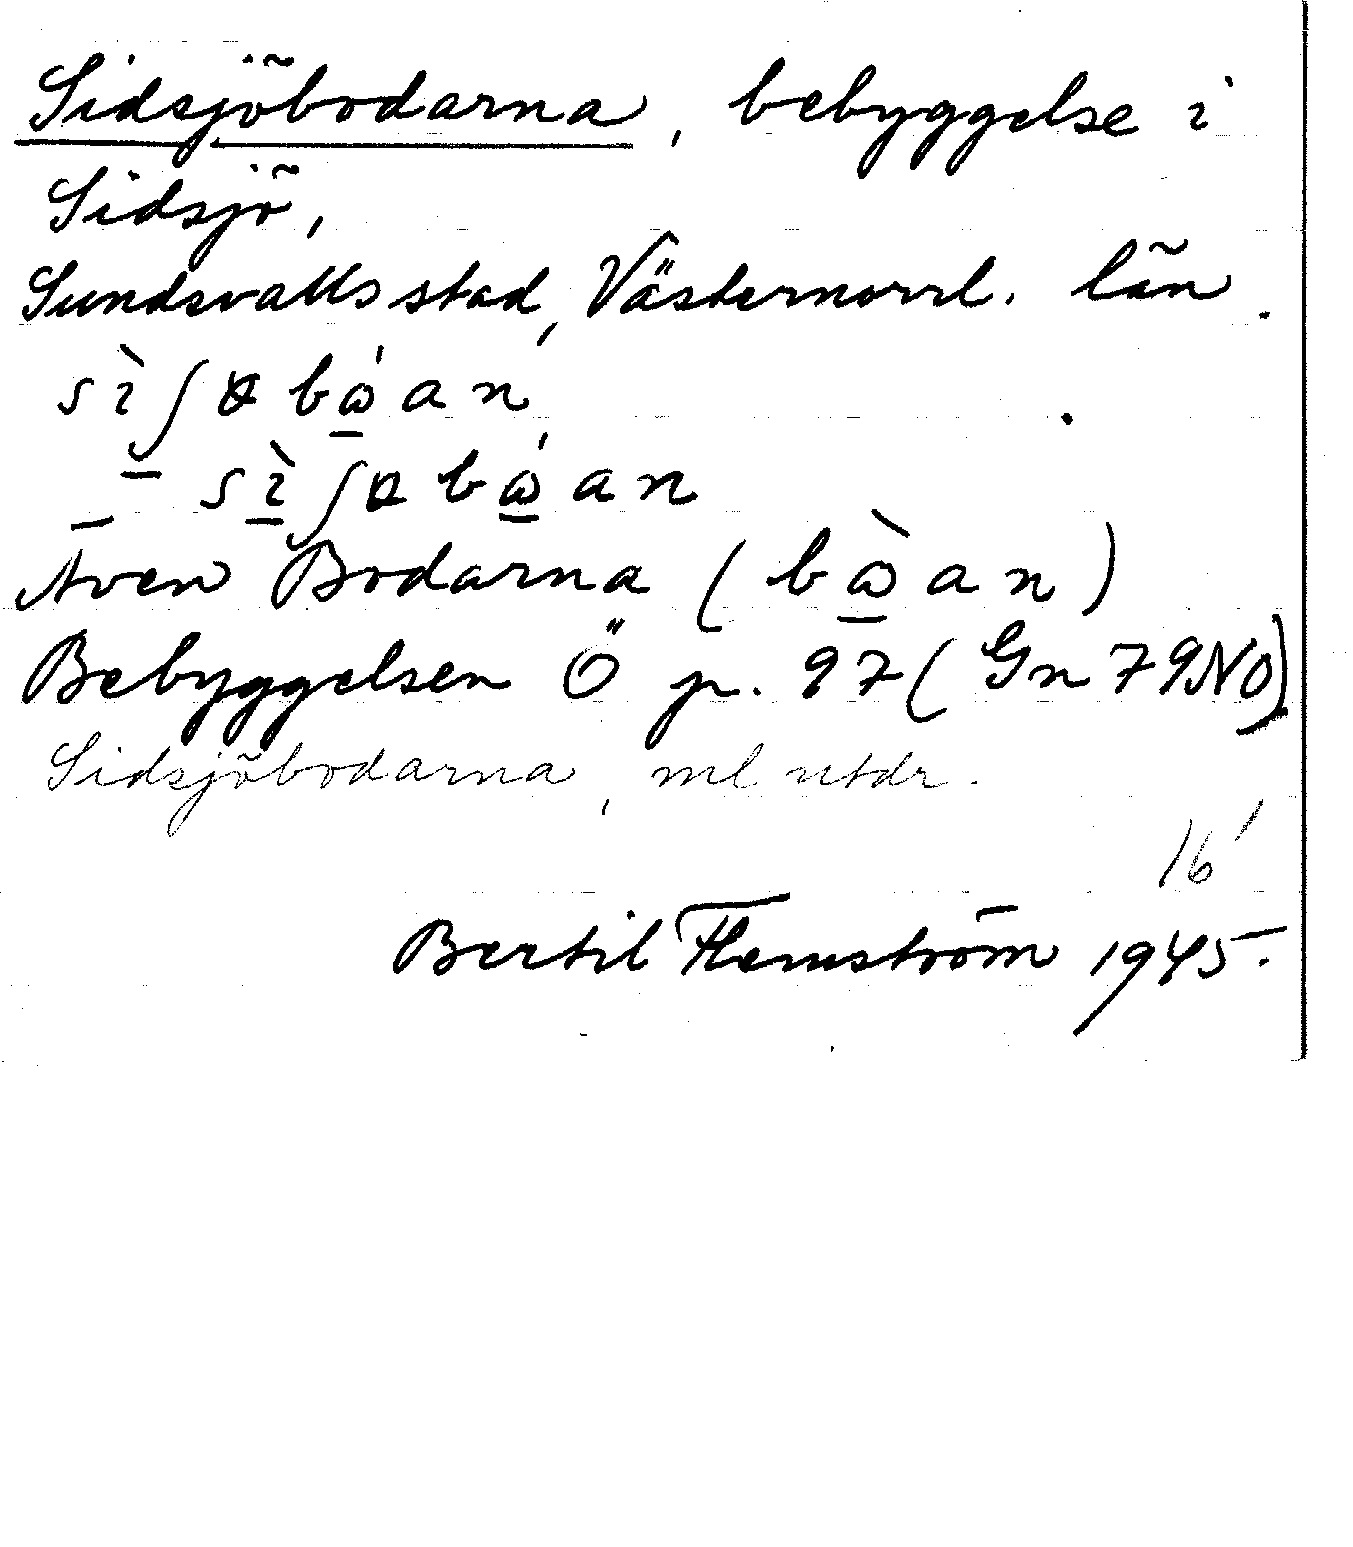 Sidsjöbodarna, bebyggelse i
Sidsjö,
Sundsvalls stad, Västernorrl. län.
sìʃɵbώ̲an,
sì̲ʃɵbώ̲an
Även Bodarna (bὼ̲an)
Bebyggelsen Ö p. 97 (Gn 79NO)
Sidsjöbodarna, ml utdr.
16'
Bertil Flemström 1945.